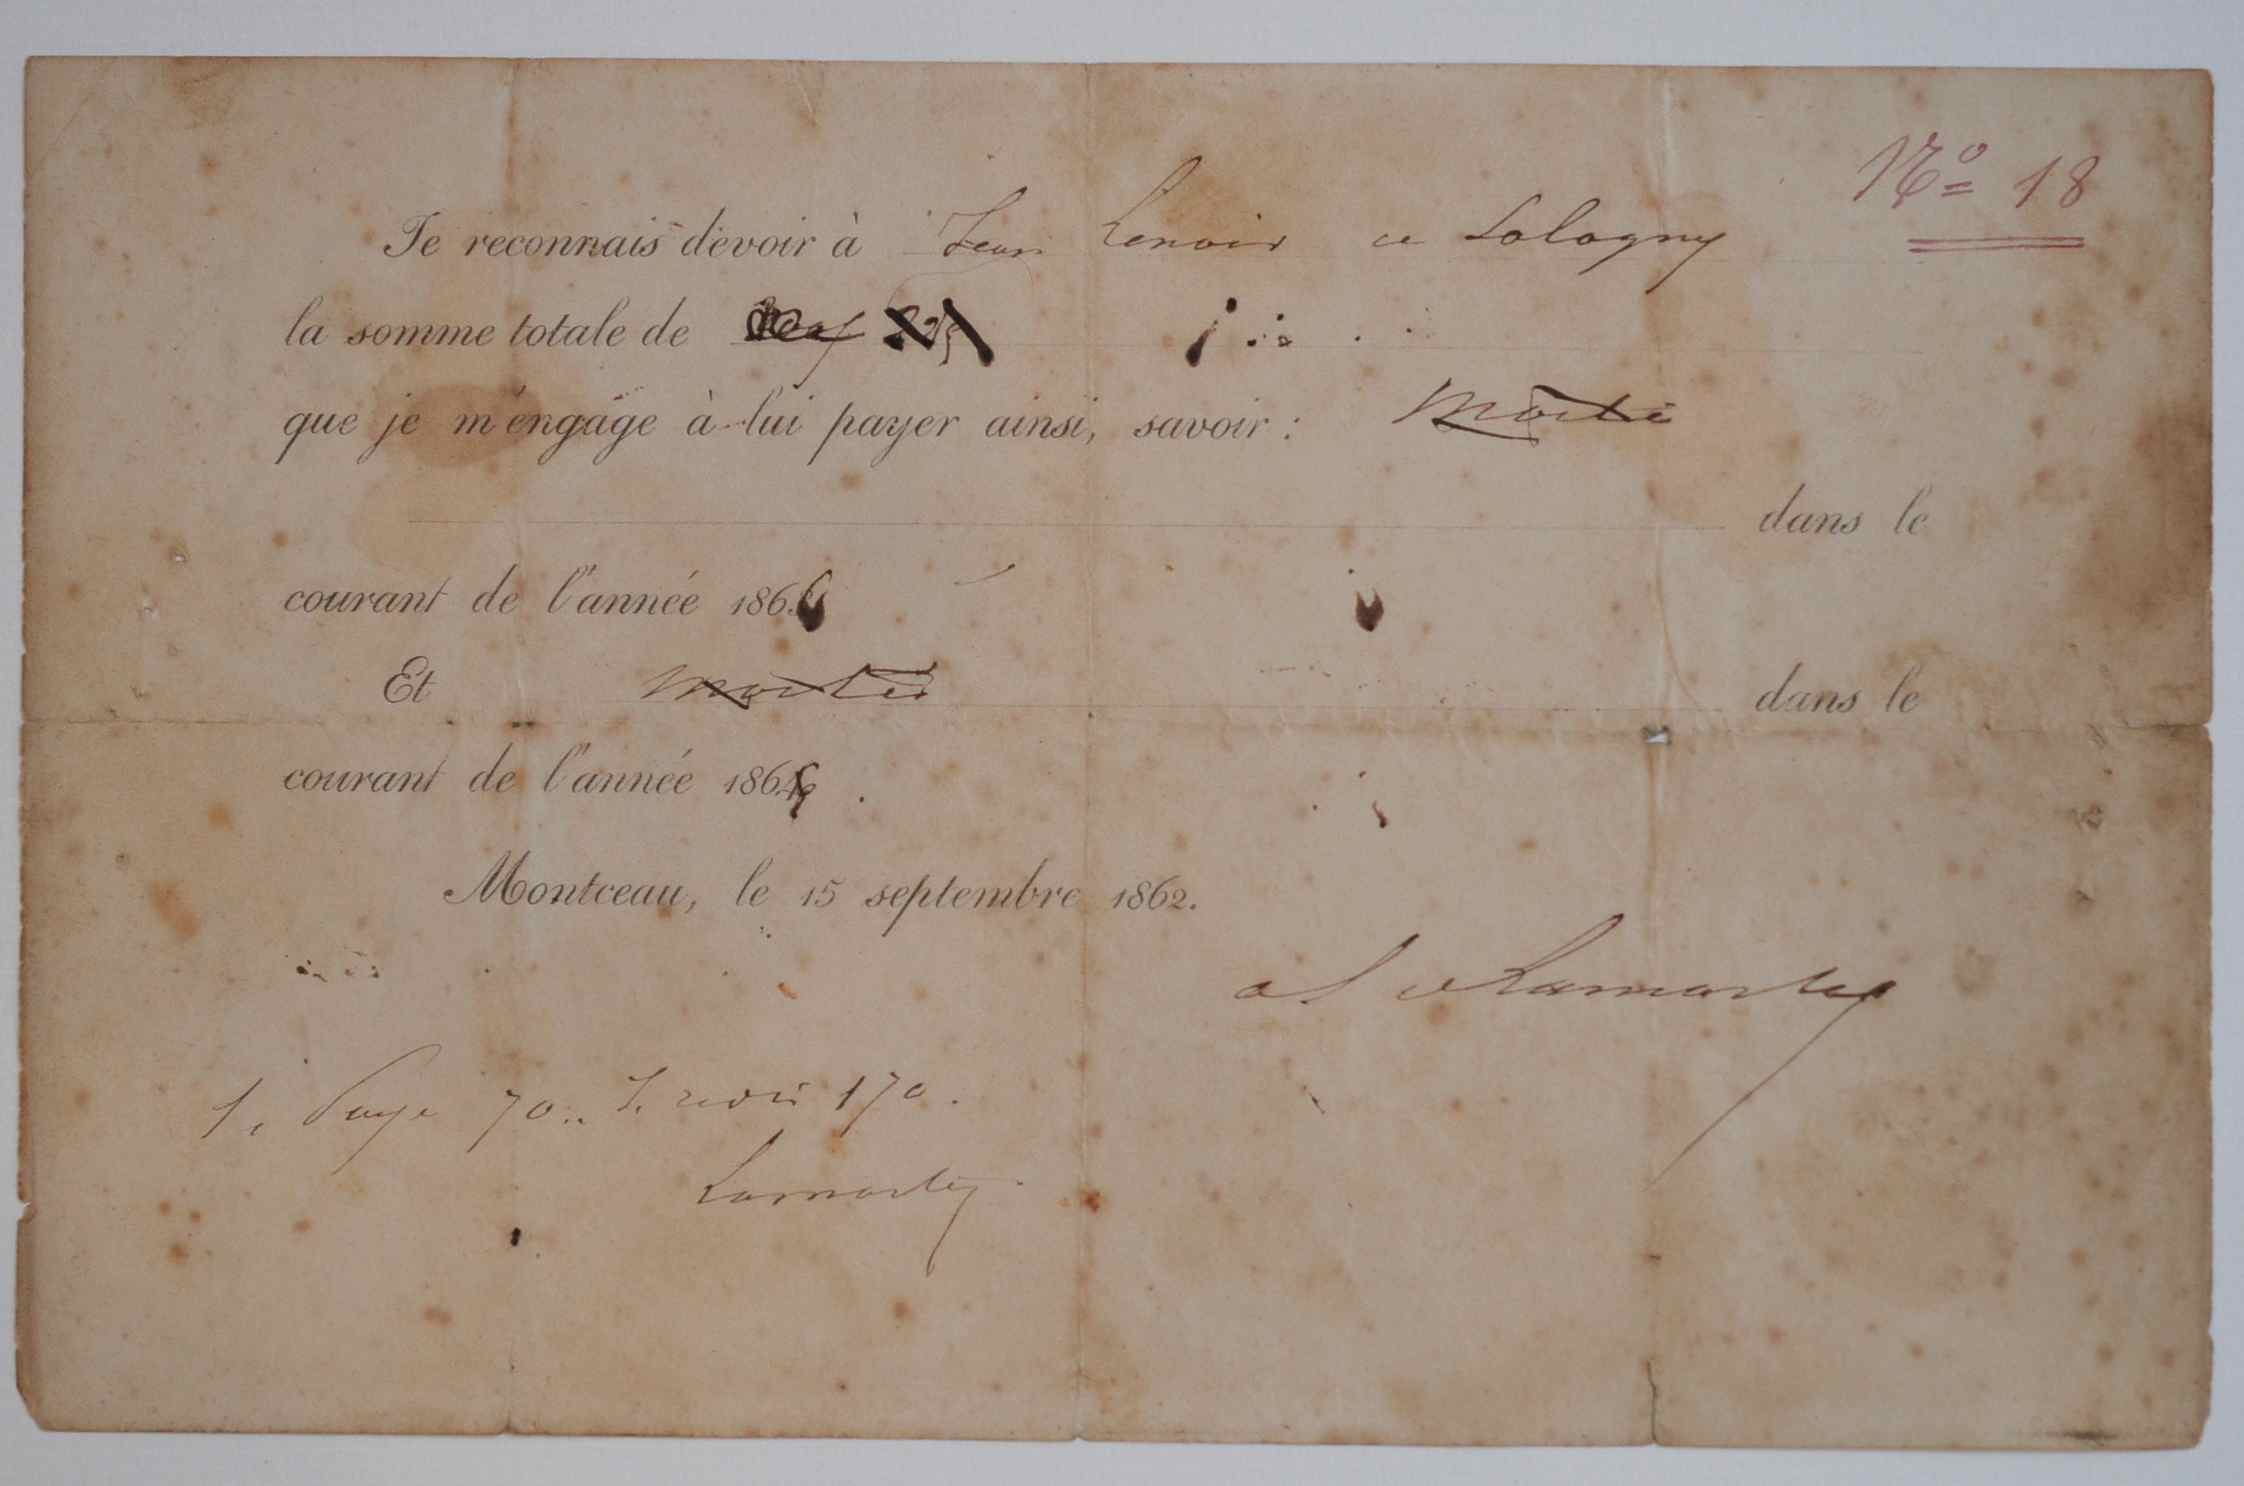 Nº 18
Je reconnais devoir à Jean Lenoir à Sologny
la somme totale de
que je m'engage à lui payer ainsi, savoir : Moitié
dans le
courant de l'année 186
Et moitié dans le
courant de l'année 186
Montceau, le 15 septembre 1862.
Al de Lamartine
1. Payé 70.. J. redois 170.
Lamartine